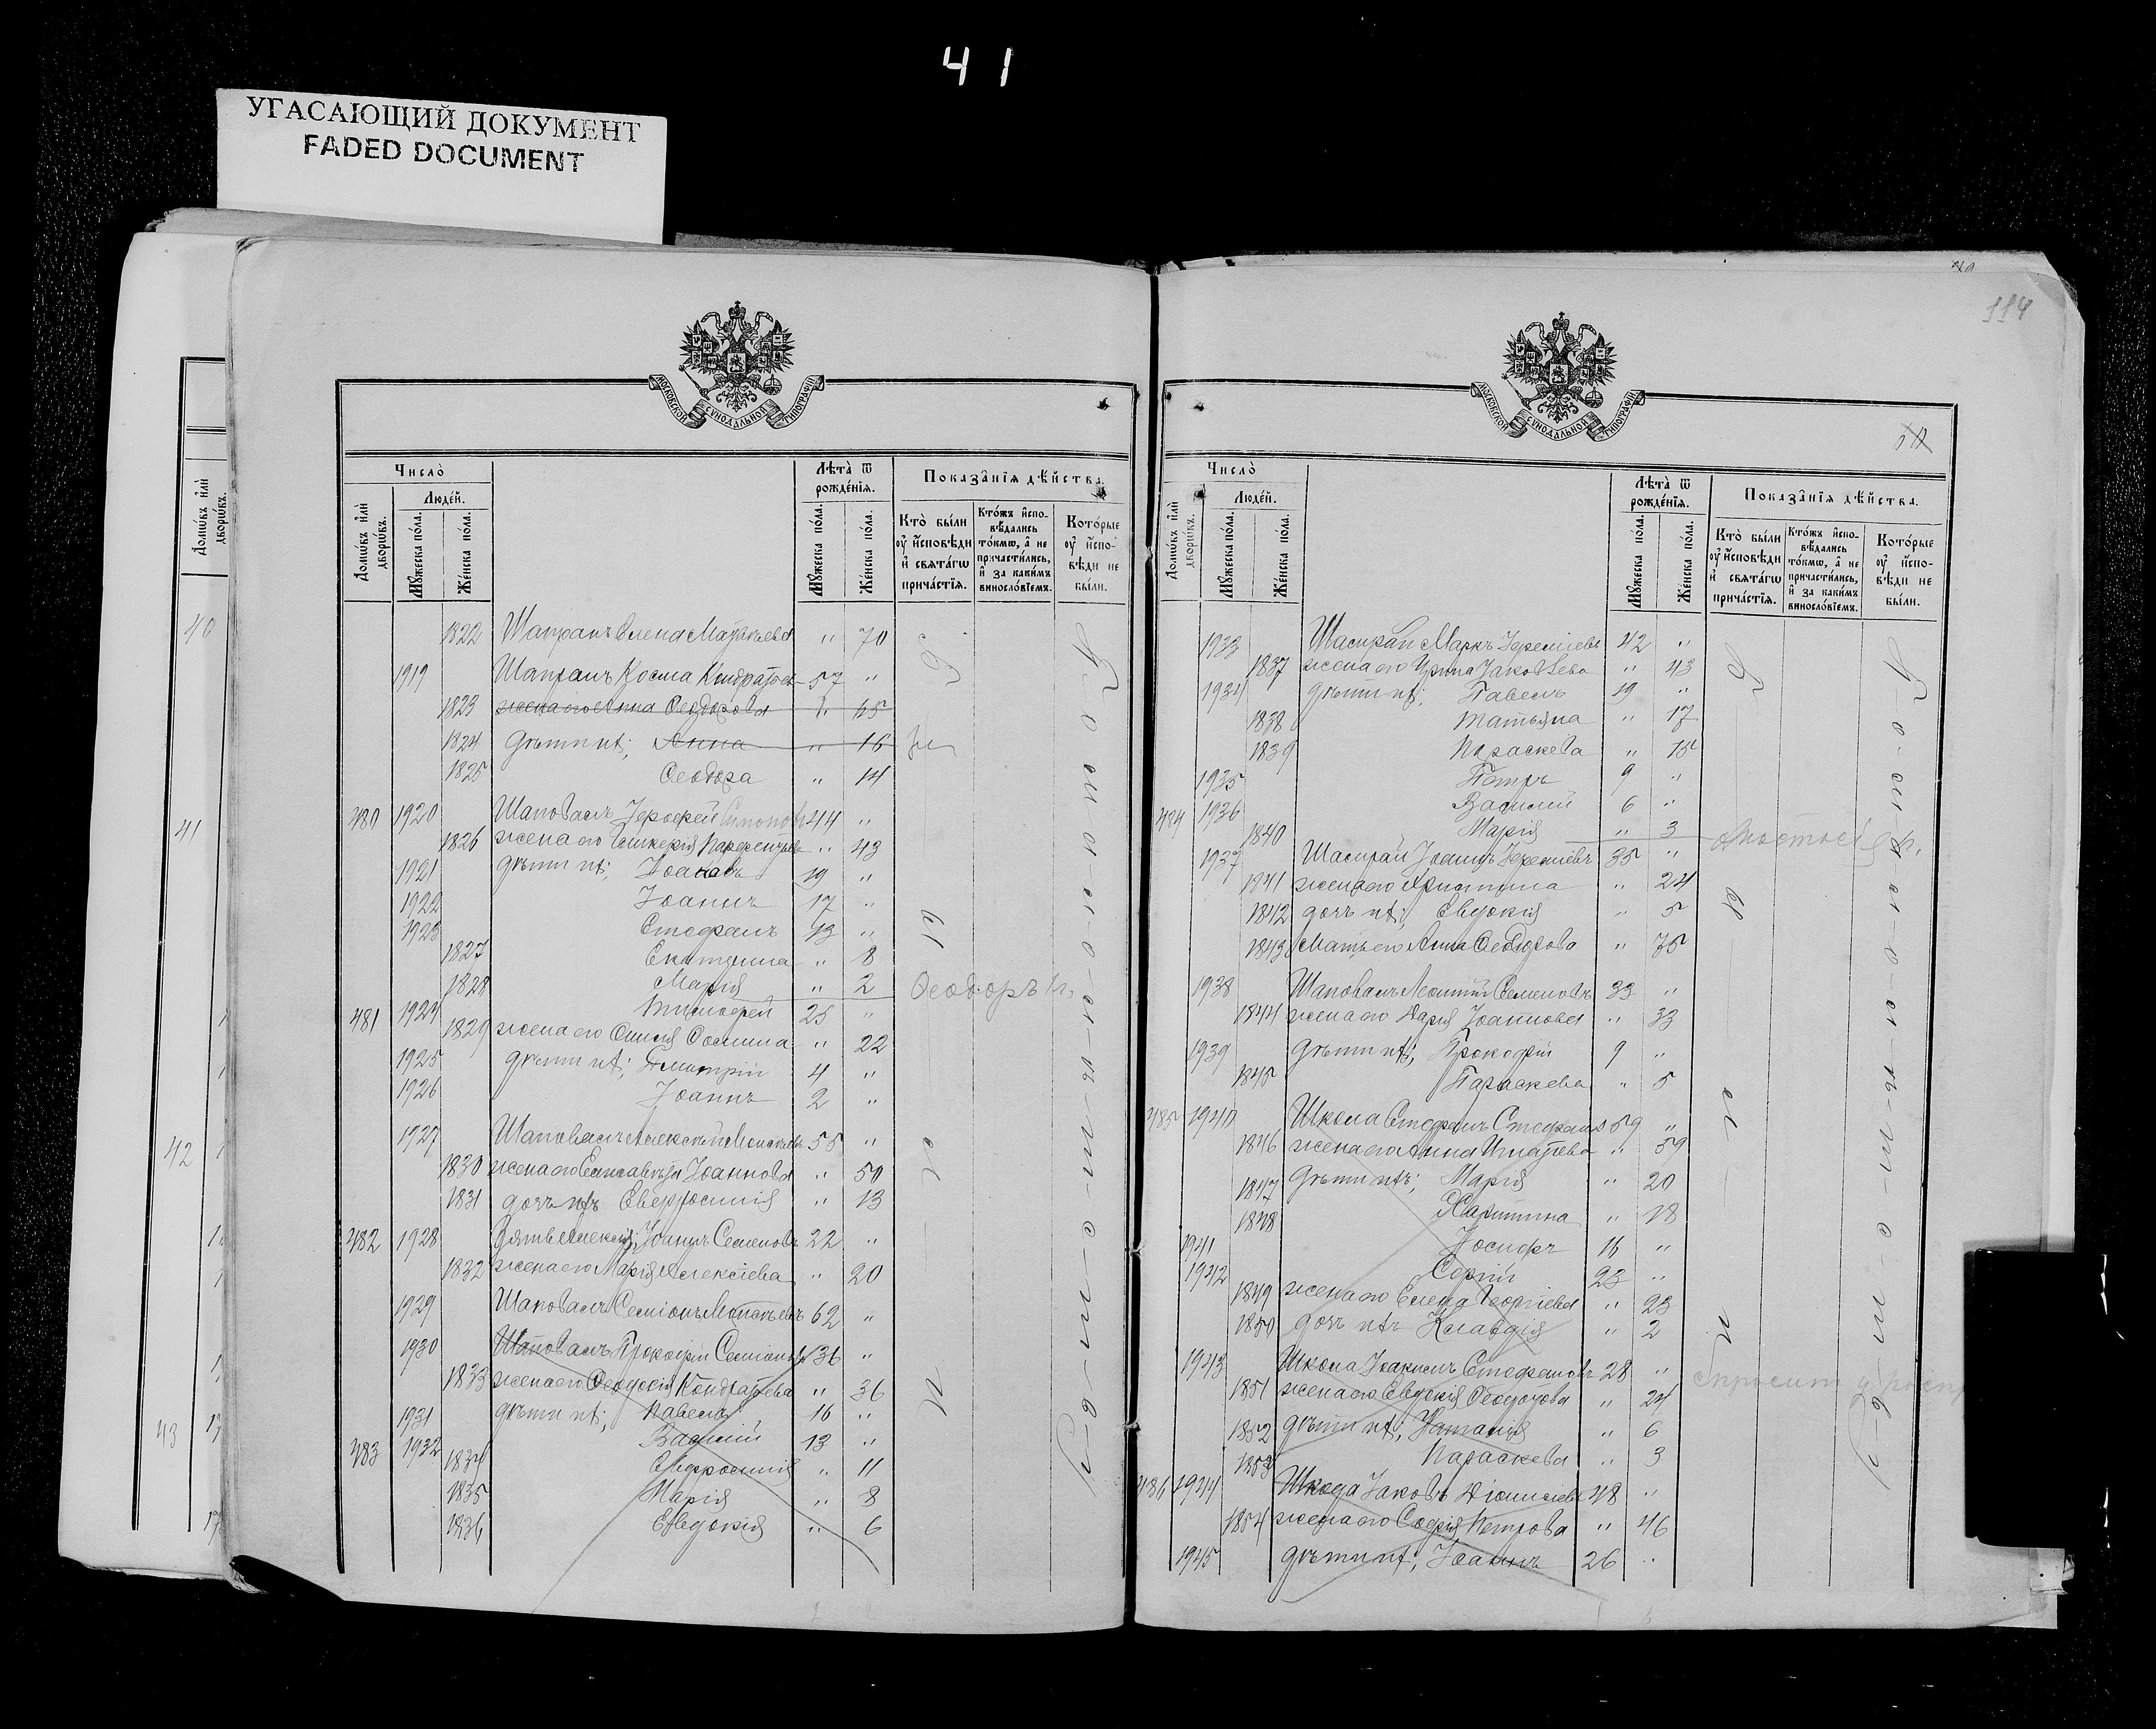 41
УГАСАЮЩИЙ ДОКУМЕНТ
FADED DOCUMENT
40
41
42
43
МОСКОВСКОЙ СѴНОДАЛЬНОЙ ТИПОГРАФІИ
Число̀
Лѣта̀ ѿ рожде́нїѧ.
Показа̂нїѧ дѣ́йства.
Домѡ́въ и҆лѝ дворѡ́въ.
Люде́й.
Мꙋ́жеска по́ла.
Же́нска по́ла.
Мꙋ́жеска по́ла.
Же́нска по́ла.
Кто̀ бы́ли ᲂу҆ и҆́сповѣди и҆ свѧта́гѡ прича́стїѧ.
Кто́жъ и҆сповѣ́дались то́кмѡ, а҆ не причасти́лись, и҆ за каки́мъ виносло́вїемъ.
Кото́рые ᲂу҆ и҆́сповѣди не бы́ли.
1822 Шапранъ Елена Матвѣева " 70
1919 Шапранъ Косма Кондратовъ 57 "
1823 жена его Анна Ѳеодорова " 65
1824 дѣти ихъ; Анна " 16
1825 Ѳеодора " 14
480 1920 Шаповалъ Іероѳей 44 "
1826 жена его Гликерія Парѳентьева " 43
1921 дѣти ихъ; Іоаковъ 19 "
1922 Іоаннъ 17 "
1923 Стефанъ 13 "
1827 Екатерина " 8
1828 Марія " 2 Ѳеодоръ
481 1924 Тимоѳей 25 "
1829 жена его " 22
1925 дѣти ихъ; Дмитрій 4 "
1926 Іоаннъ 2 "
1927 Шаповалъ Алексѣй 55 "
1830 жена его Елисавета Іоаннова " 50
1831 дочь ихъ Евфросинія " 13
482 1928 Зять Алексія; Іоаннъ Семеновъ 22 "
1832 жена его Марія Алексіева " 20
1929 Шаповалъ Семіонъ 62 "
1930 Шаповалъ Прокофій Семіоновъ 36 "
1833 жена его Ѳеодосія Кондратева " 36
1931 дѣти ихъ; Павелъ 16 "
483 1932 Василій 13 "
1834 Евфросинія " 11
1835 Марія " 8
1836 Евдокія " 6
114
МОСКОВСКОЙ СѴНОДАЛЬНОЙ ТИПОГРАФІИ
Число̀
Лѣта̀ ѿ рожде́нїѧ.
Показа̂нїѧ дѣ́йства.
Домѡ́въ и҆лѝ дворѡ́въ.
Люде́й.
Мꙋ́жеска по́ла.
Же́нска по́ла.
Мꙋ́жеска по́ла.
Же́нска по́ла.
Кто̀ бы́ли ᲂу҆ и҆́сповѣди и҆ свѧта́гѡ прича́стїѧ.
Кто́жъ и҆сповѣ́дались то́кмѡ, а҆ не причасти́лись, и҆ за каки́мъ виносло́вїемъ.
Кото́рые ᲂу҆ и҆́сповѣди не бы́ли.
1933 Маркъ Іереміевъ 42 "
1837 жена его Ирина Іаковлева " 43
1934 дѣти ихъ; Павелъ 19 "
1838 Татьяна " 17
1839 Параскева " 15
1935 Петръ 9 "
484 1936 Василій 6 "
1840 Марія " 3
1937 Іоаннъ Іереміевъ 35 "
1841 жена его Христина " 24
1842 дочь ихъ; Евдокія " 5
1843 Мать его Анна Ѳеодорова " 75
1938 Шаповалъ Леонтій Семеновъ 33 "
1844 жена его Дарія Іоаннова " 33
1939 дѣти ихъ; Прокофій 9 "
1845 Параскева " 5
485 1940 Школа Стефанъ Стефановъ 59 "
1846 жена его Анна Игнатіева " 59
1847 дѣти ихъ; Марія " 20
1848 Харитина " 18
1941 Іосифъ 16 "
1942 Сергій 23 "
1849 жена его Елена Георгіева " 23
1850 дочь ихъ Клавдія " 2
1943 Школа Іоакимъ Стефановъ 28 "
1851 жена его Евдокія " 24
1852 дѣти ихъ; Наталія " 6
1853 Параскева " 3
486 1944 Шкода Іаковъ Діонисіевъ 48 "
1854 жена его Софія Петрова " 46
1945 дѣти ихъ; Іоаннъ 26 "